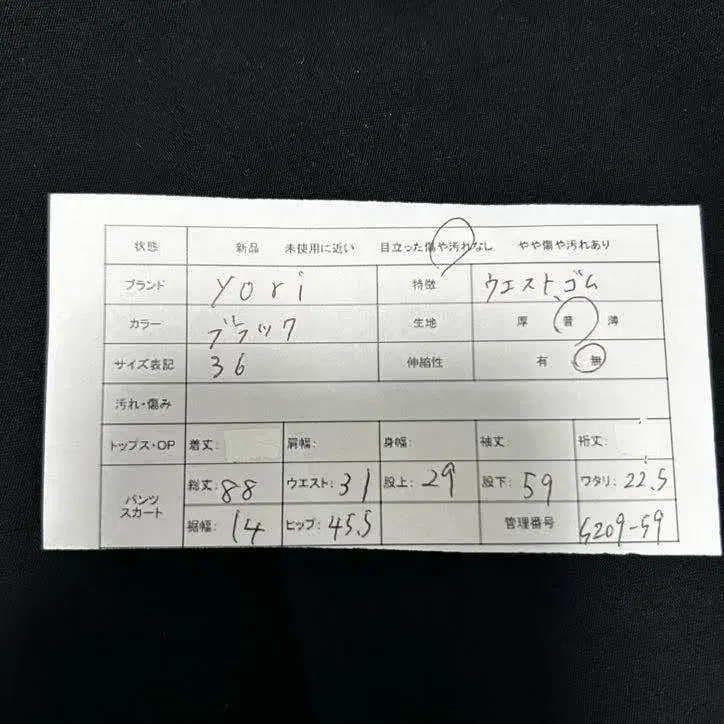 状態 新品 未使用に近い 目立った傷や汚れなし やや傷や汚れあり
ブランド yori 特徴 ウエストゴム
カラー ブラック 生地 厚 普 薄
サイズ表記 36 伸縮性 有 無
汚れ・傷み
トップス・OP 着丈: 肩幅: 身幅: 袖丈: 裄丈:
パンツ スカート 総丈:88 ウエスト:31 股上:29 股下:59 ワタリ:22.5
裾幅:14 ヒップ:45.5 管理番号 G209-59